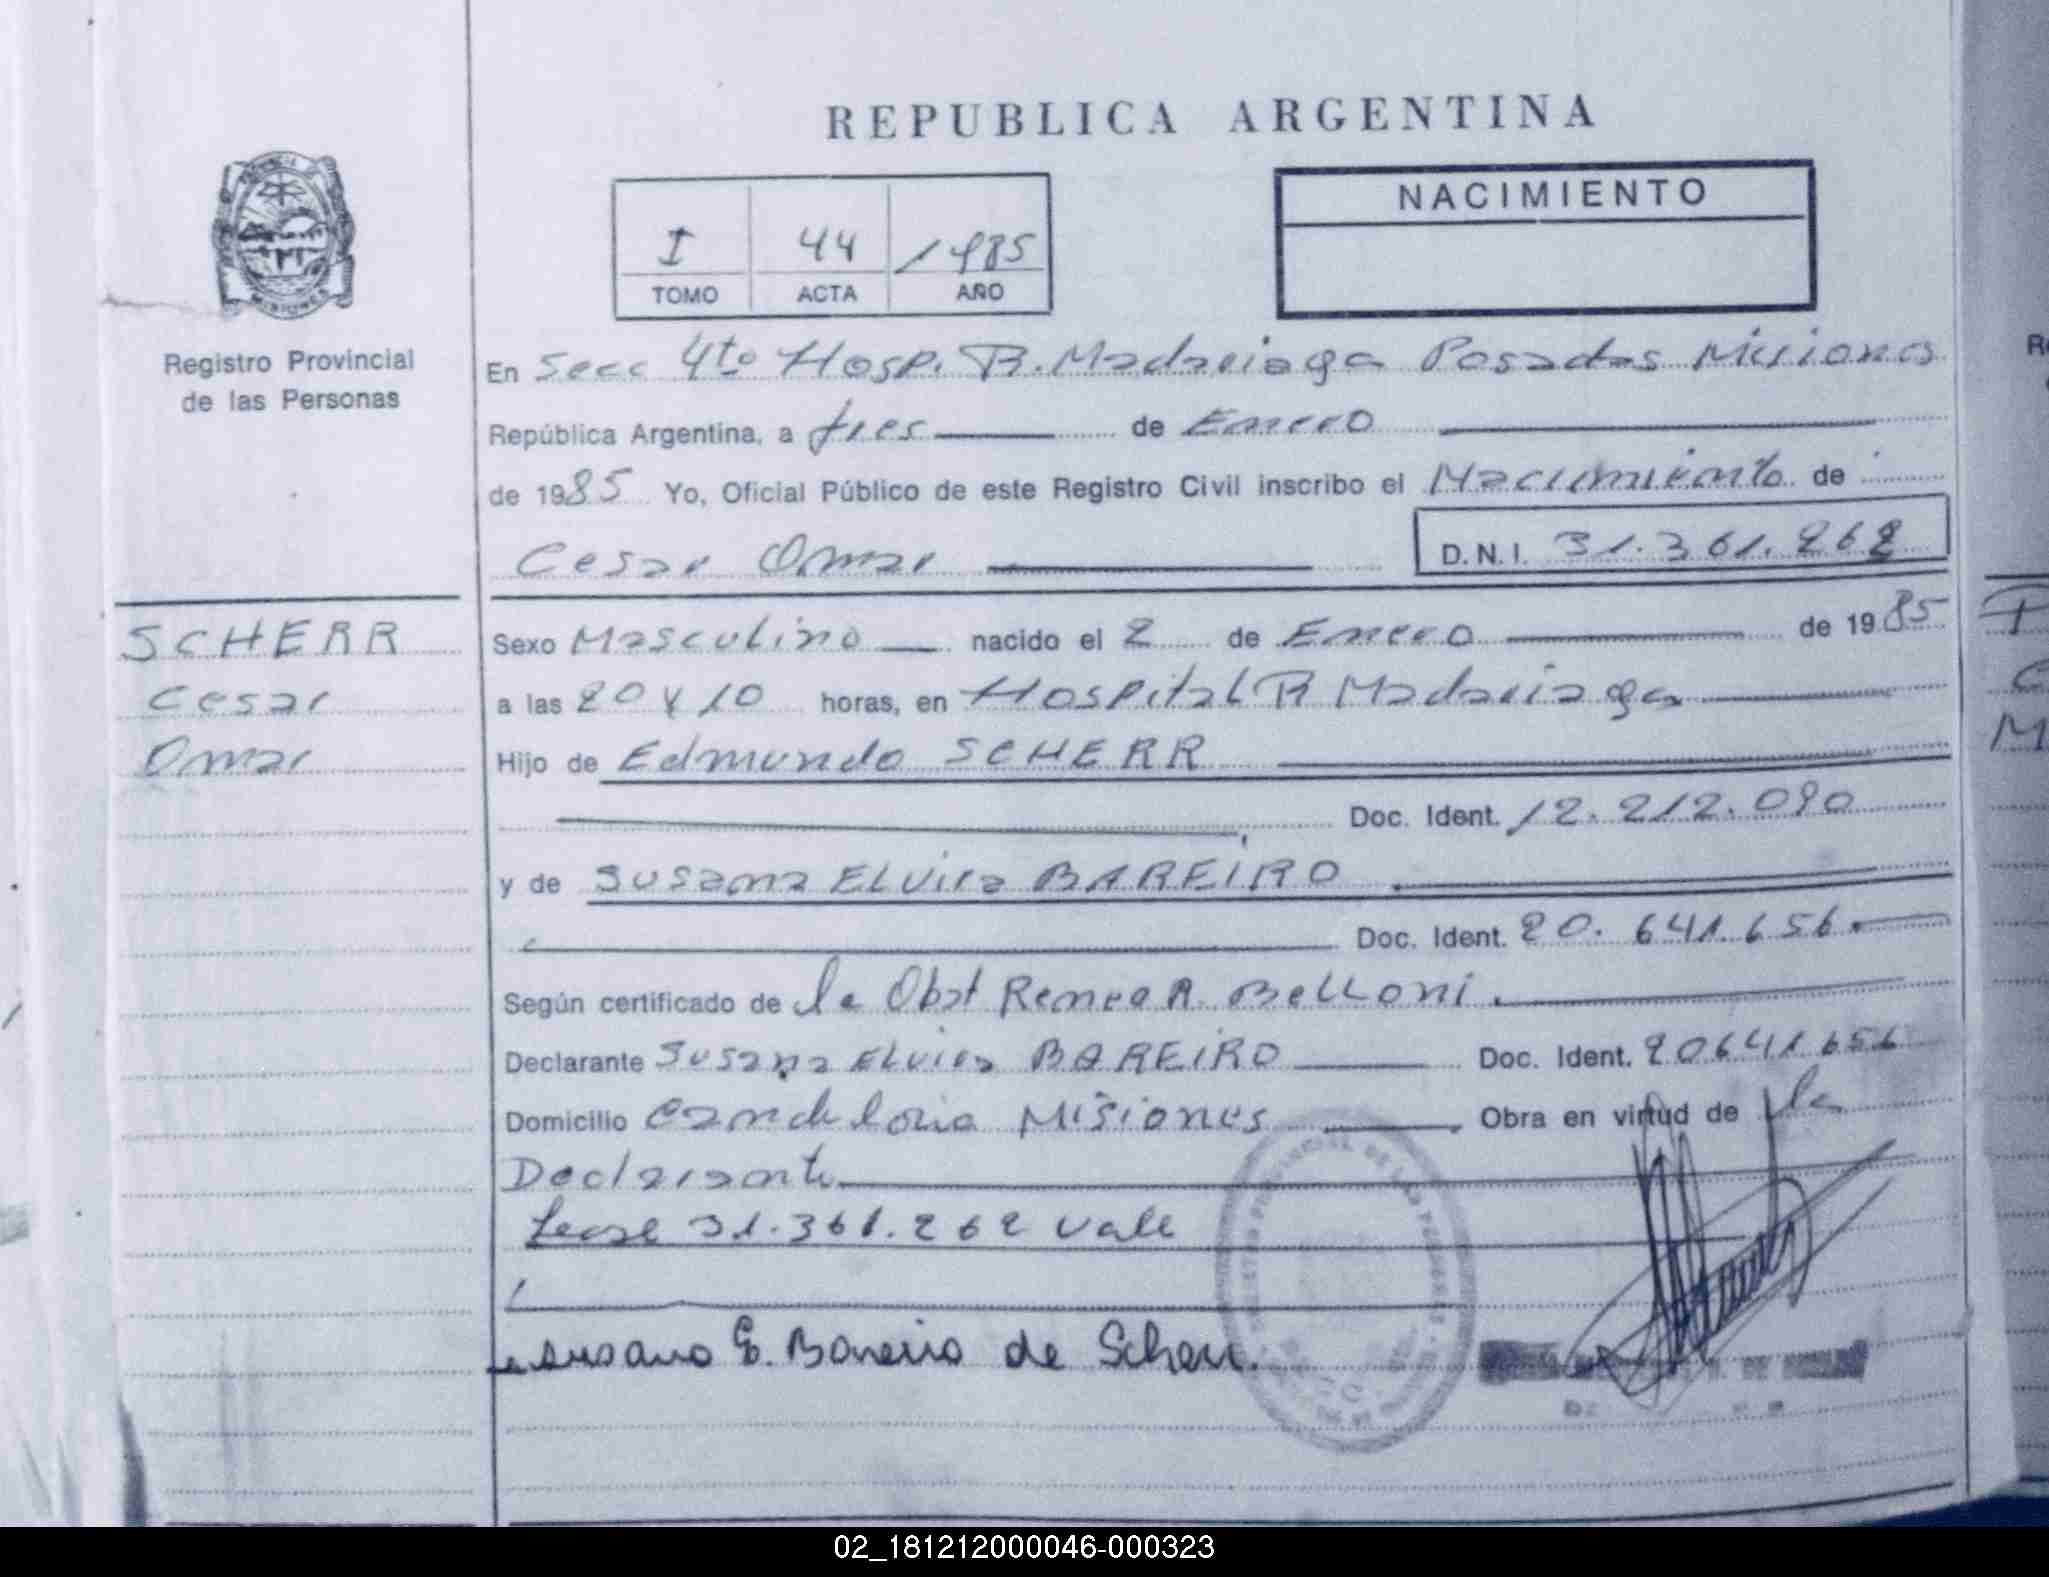 REPUBLICA ARGENTINA
NACIMIENTO
I 44 1985
TOMO ACTA AÑO
Registro Provincial
de las Personas
En Secc 4to Hosp. R. Madariaga Posadas Misiones
República Argentina, a tres de Enero
de 1985 Yo, Oficial Público de este Registro Civil inscribo el Nacimiento de
Cesar Omar D.N.I. 31.361.262
SCHERR
Cesar
Omar
Sexo Masculino nacido el 2 de Enero de 1985
a las 20 y 10 horas, en Hospital R Madariaga
Hijo de Edmundo SCHERR
Doc. Ident. 12.212.090
y de Susana Elvira BAREIRO
Doc. Ident. 20.641.656.
Según certificado de la Obst Renea A. Belloni.
Declarante Susana Elvira BAREIRO Doc. Ident. 20641656
Domicilio Candelaria Misiones Obra en virtud de la
Declarante
Lease 31.361.262 Vale
Susana E. Bareiro de Scherr.
02_181212000046-000323